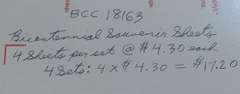 BCC 18163
Bicentennial Souvenir Sheets
4 Sheets per set @ $4.30 each
4 Sets: 4 x $4.30 = $17.20